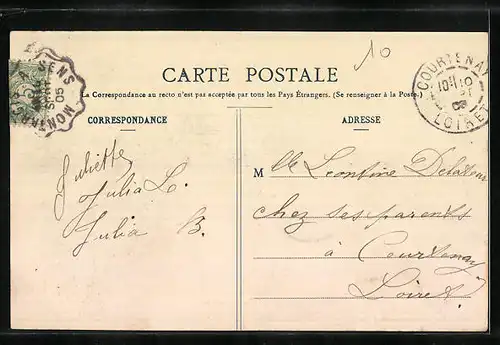 10
CARTE POSTALE
La Correspondance au recto n'est pas acceptée par tous les Pays Étrangers. (Se renseigner à la Poste.)
CORRESPONDANCE
ADRESSE
SENS
05
COURTENAY
LOIRET
Juliette
Julia L.
Julia B.
Mlle Léontine
chez ses parents
à Courtenay
Loiret